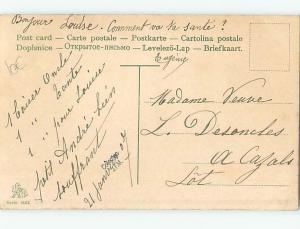 Bonjour Louise. Comment va ta santé ?
Post card — Carte postale — Postkarte — Cartolina postale
Dopisnice — Открытое-письмо — Levelező-Lap — Briefkaart.
1 baiser Oncle
1 " Tante
1 " pour Louise
petit André
souffrant
21 janvier 07
Madame Veuve
L. Desoncles
A Cazals
Lot